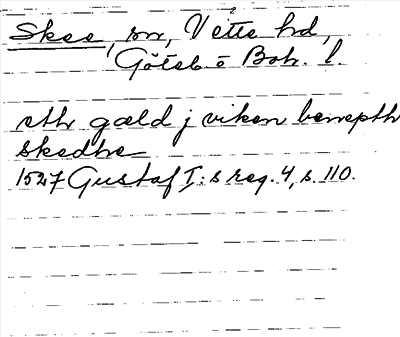 Skee, sn, Vette hd,
Göteb o Boh. l.
eth gæld j viken benepth
Skedhe
1527 Gustaf I:s reg. 4, s. 110.